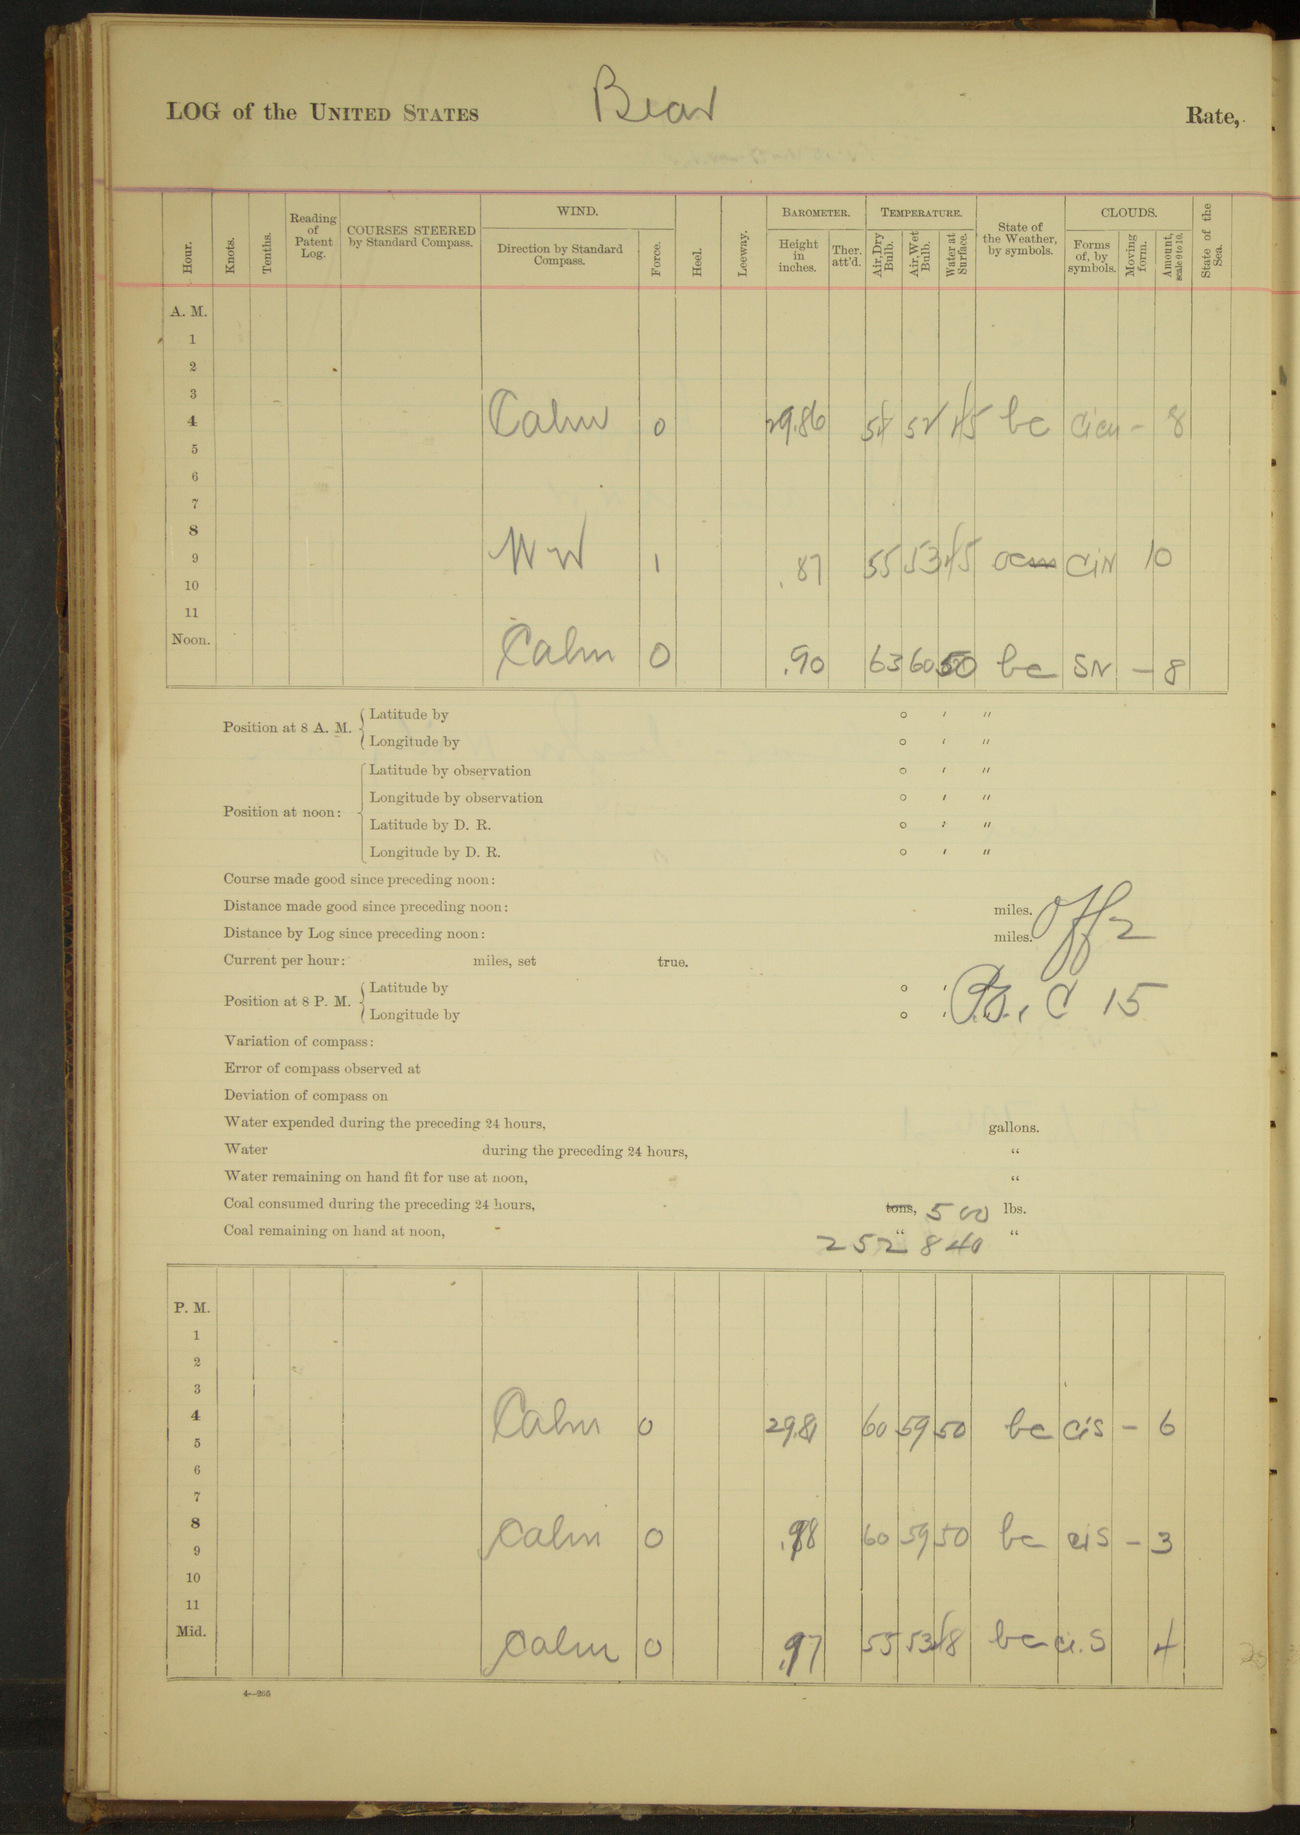 LOG of the UNITED STATES Bear Rate,
Hour. Knots. Tenths. Reading of Patent Log. COURSES STEERED by Standard Compass. WIND. Direction by Standard Compass. Force. Heel. Leeway. BAROMETER. Height in inches. Ther. att'd. TEMPERATURE. Air, Dry Bulb. Air, Wet Bulb. Water at Surface. State of the Weather, by symbols. CLOUDS. Forms of, by symbols. Moving form. Amount, scale 0 to 10. State of the Sea.
A. M.
1
2
3
4 Calm 0 29.86 54 52 45 bc cicu - 8
5
6
7
8
9 1 .87 55 53 45 ciN 10
10
11
Noon. Calm 0 .90 63 60 50 bc SN - 8
Position at 8 A. M. Latitude by ° ′ ″
Longitude by ° ′ ″
Position at noon: Latitude by observation ° ′ ″
Longitude by observation ° ′ ″
Latitude by D. R. ° ′ ″
Longitude by D. R. ° ′ ″
Course made good since preceding noon:
Distance made good since preceding noon: miles.
Distance by Log since preceding noon: miles. Off 2
Current per hour: miles, set true.
Position at 8 P. M. Latitude by ° ′
Longitude by ° ′ C 15
Variation of compass:
Error of compass observed at
Deviation of compass on
Water expended during the preceding 24 hours, gallons.
Water during the preceding 24 hours, "
Water remaining on hand fit for use at noon, "
Coal consumed during the preceding 24 hours, tons, 500 lbs.
Coal remaining on hand at noon, " 252 840 "
P. M.
1
2
3
4 Calm 0 29.81 60 59 50 bc cis - 6
5
6
7
8 Calm 0 60 59 50 bc cis - 3
9
10
11
Mid. Calm 0 55 53 48 bc ci.S 4
4—265